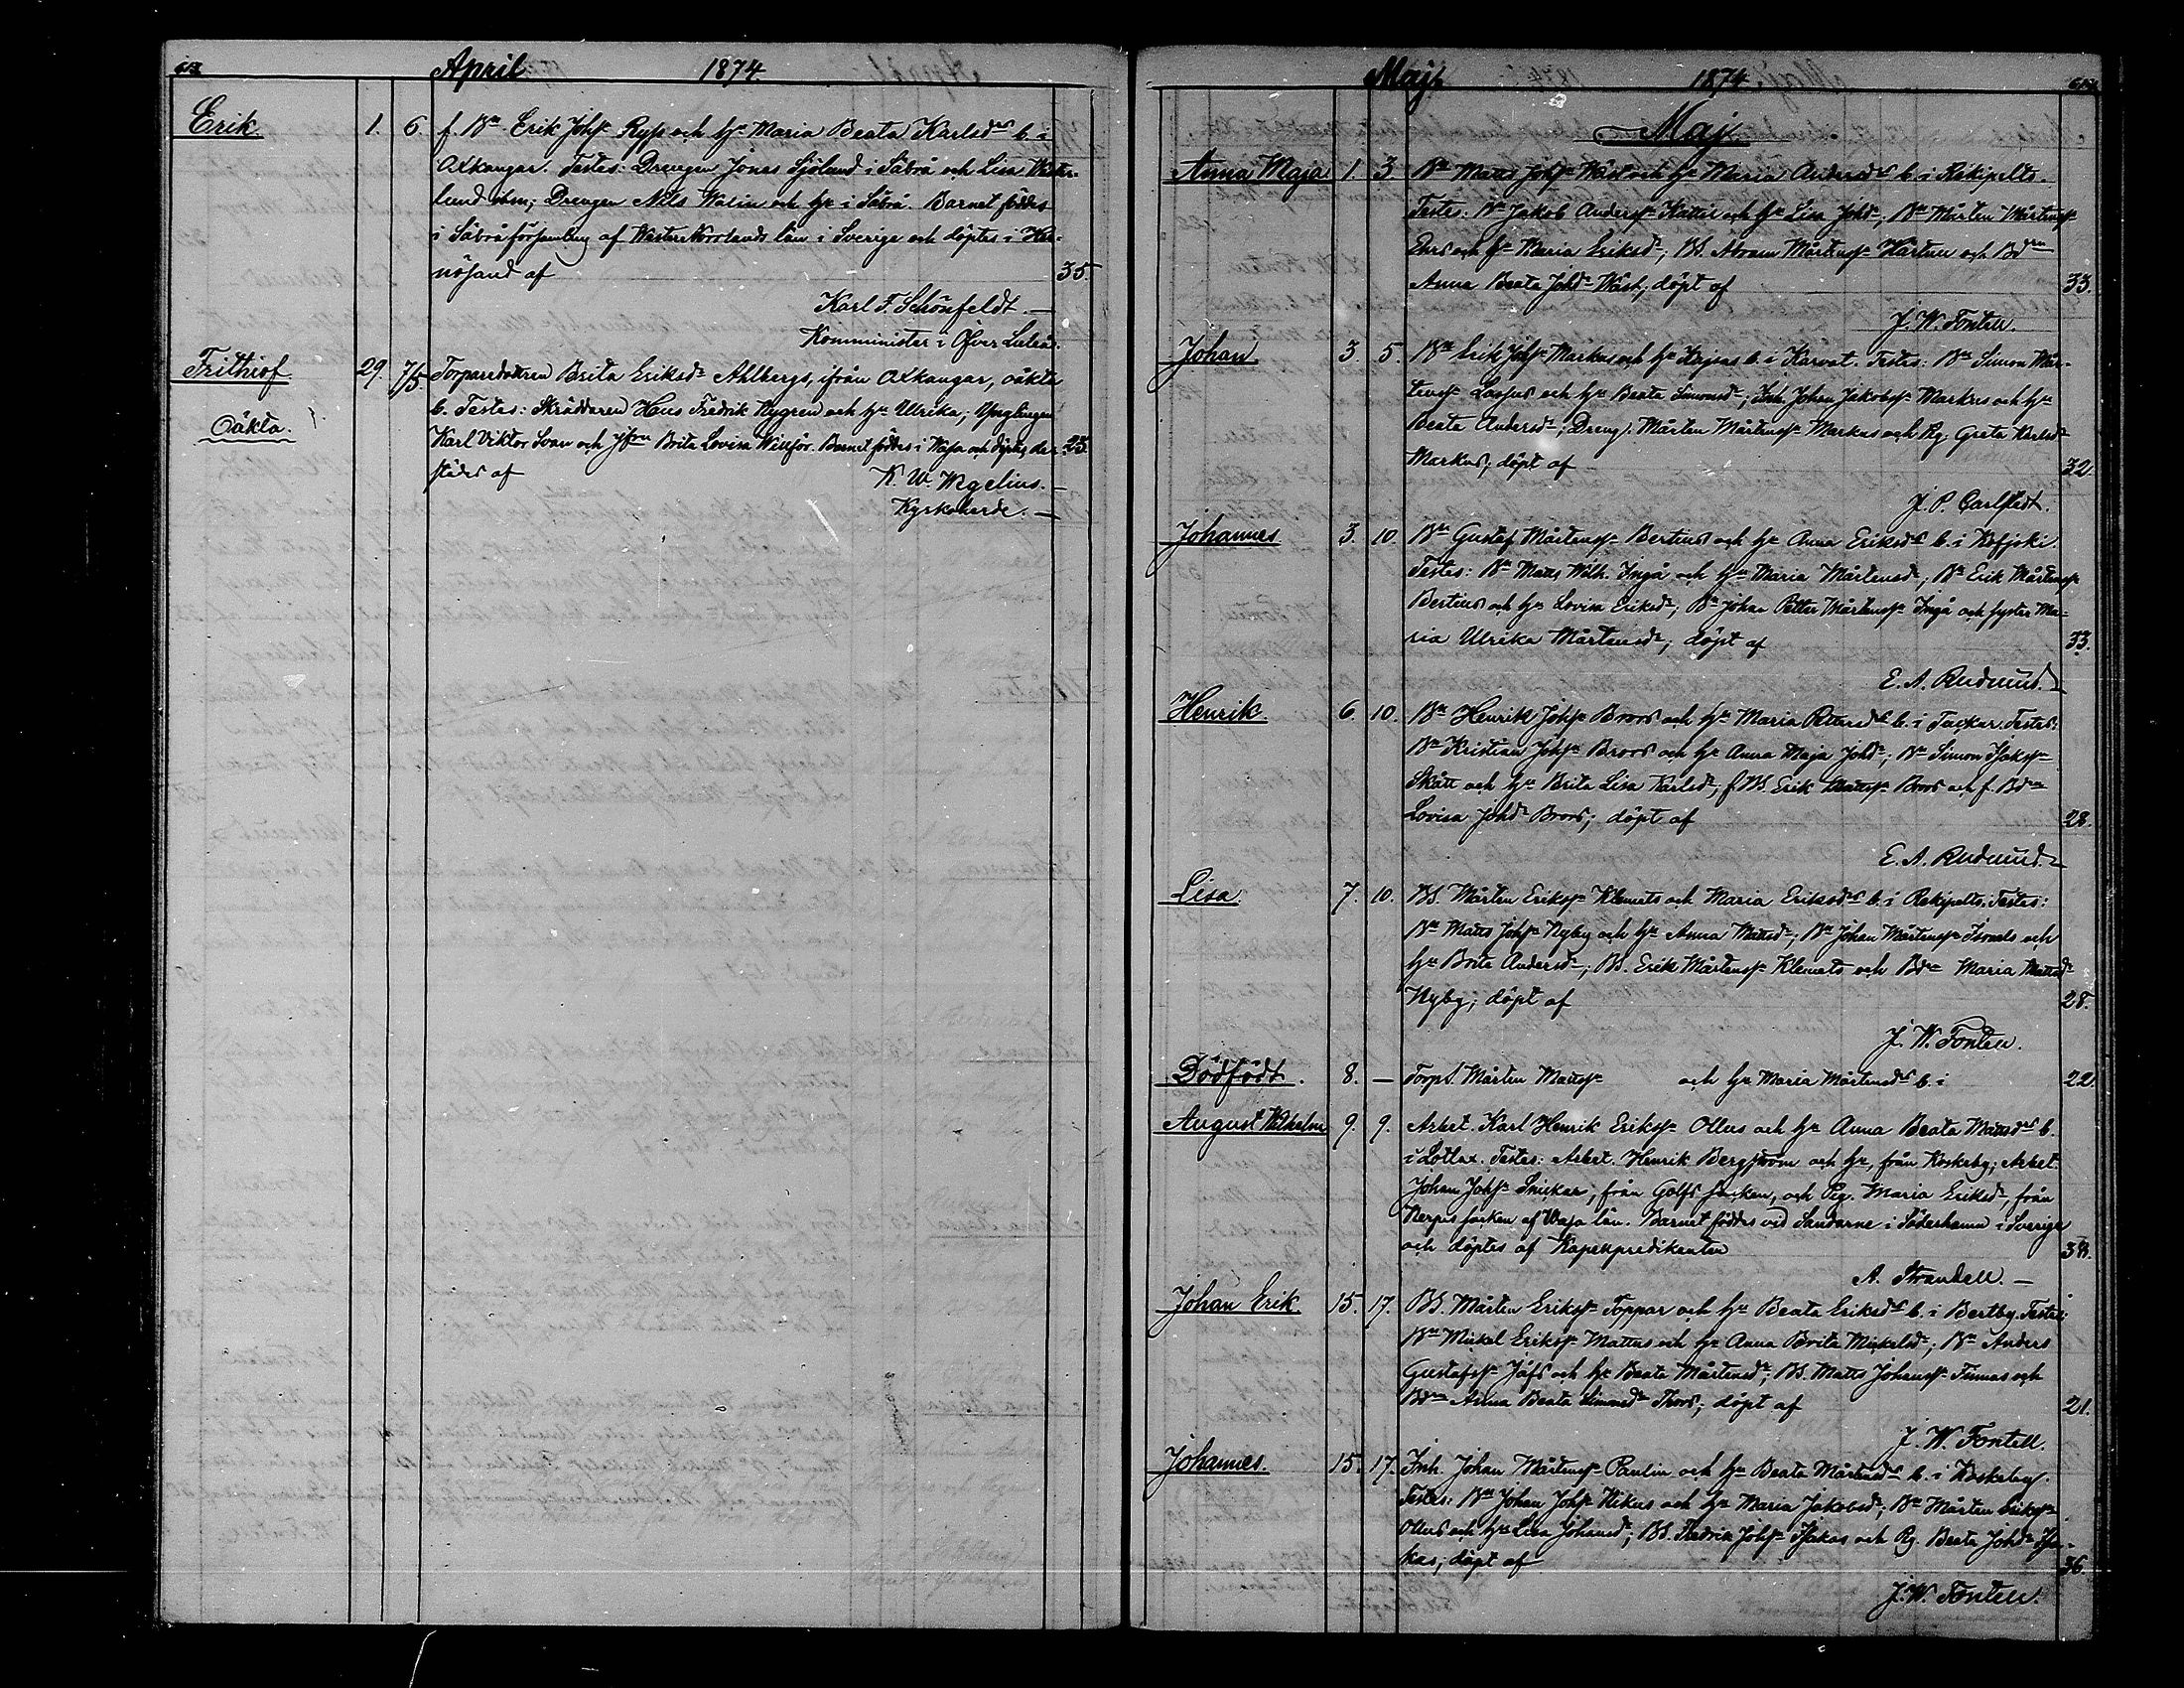 April 1874
Erik. 1. 6. f. Bn Erik Johss. Ryss och hu Maria Beata Karlsds b. i
Oxkangar. Testes: Drengen Jonas Sjölund i Säbrå och Lisa Wester-
lund ibm; Drengen Nils Walin och hu i Säbrå. Barnet föddes
i Säbrå församling af WesterNorrlands län i Sverige och döptes i Her-
nösand af 35.
Karl F. Schönfeldt.
Komminister i Öfver Luleå.
Frithiof 29. 7/5. Torparedottren Brita Eriksdr Ahlbergs, ifrån Oxkangar, oäkta
Oäkta. b. Testes: Skräddaren Hans Fredrik Nygren och hu Ulrika; Ynglingen
Karl Viktor Svan och jfrun Brita Lovisa Willför. Barnet föddes i Wasa och döptes der- 23.
städes af K. W. Wegelius.
Kyrkoherde.
Maj 1874
Maj.
Anna Maja 1 3 Bn Matts Johss. Wäst och hu Maria Andersds b. i Rökipelto.
Testes: Bn Jakob Anderss. Kattil och hu Lisa Johdr; Bn Mårten Mårtenss.
och hu Maria Eriksdr; BS. Abram Mårtenss. och Bdrn
Anna Beata Johdr Wäst; döpt af 33.
J. W. Fontell.
Johan 3. 5. Bn Erik Johss. Markus och hu Kajsas b. i Karvat. Testes: Bn Simon Mår-
tenss. Lassus och hu Beata Simonsdr; Inh. Johan Jakobss. Markus och hu
Beata Andersdr; Dreng. Mårten Mårtenss. Markus och Pig. Greta Karlsdr
Markus; döpt af 32.
J. P. Carlstedt.
Johannes 3. 10. Bn Gustaf Mårtenss. Bertius och hu Anna Eriksds b. i
Testes: Bn Matts Wilh. Ingå och hu Maria Mårtensdr; Bn Erik Mårtenss.
Bertius och hu Lovisa Eriksdr; Bn Johan Petter Mårtenss. Ingå och syster Ma-
ria Ulrika Mårtensdr; döpt af 33.
E. A. Rudnäs.
Henrik. 6. 10. Bn Henrik Johss. Brors och hu Maria Pettersds b. i Tuckur. Testes:
Bn Kristian Johss. Brors och hu Anna Maja Johdr; Bn Simon Isakss.
Skått och hu Brita Lisa Karlsdr; f. BS. Erik Mattss. Brors och f. Bdrn
Lovisa Johdr Brors; döpt af 28.
E. A.
Lisa. 7. 10. BS. Mårten Erikss. Klemets och Maria Eriksds b. i Rekipelto. Testes:
Bn Matts Johss. Nyby och hu Anna Mattsdr; Bn Johan Mårtenss. och
hu Brita Andersdr; BS. Erik Mårtenss. Klemets och Bdrn Maria Mattsdr
Nyby; döpt af 28.
J. W. Fontell.
Dödfödt. 8. — Torp. Mårten Mattss. och hu Maria Mårtensds b. i 22
August Wilhelm 9. 9. Arbet. Karl Henrik Erikss. Ollus och hu Anna Beata Mattsds b.
i Lotlax. Testes: Arbet. Henrik Bergström och hu, från Koskeby; Arbet.
Johan Johss. Snickar, från Solfs socken, och Pig. Maria Eriksdr, från
Nerpes socken af Wasa län. Barnet föddes vid Sandarne i Söderhamn i Sverige
och döptes af Kapellpredikanten 38.
A. Strandell.
Johan Erik 15. 17. BS. Mårten Erikss. Toppar och hu Beata Eriksds b. i Bertby. Testes:
Bn Mickel Erikss. Mattus och hu Anna Brita Mickelsdr; Bn Anders
Gustafss. Jåfs och hu Beata Mårtensdr; BS. Matts Johanss. Finnas och
Bdrn Anna Beata Simonsdr Thors; döpt af 21.
J. W. Fontell.
Johannes. 15. 17. Inh. Johan Mårtenss. Paulin och hu Beata Mårtensds b. i Koskeby.
Testes: Bn Johan Johss. Nikus och hu Maria Jakobsdr; Bn Mårten Erikss.
Ollus och hu Lisa Johansdr; BS. Fredrik Johss. Isakas och Pig. Beata Johdr Isa-
kas; döpt af 36.
J. W. Fontell.